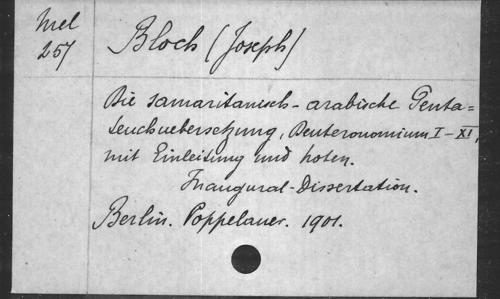 Mel
257
Bloch (Joseph)
Die samaritanisch-arabische Penta=
teuchuebersetzung, Deuteronomium I-XI,
mit Einleitung und Noten.
Inaugural-Dissertation.
Berlin. Poppelauer. 1901.